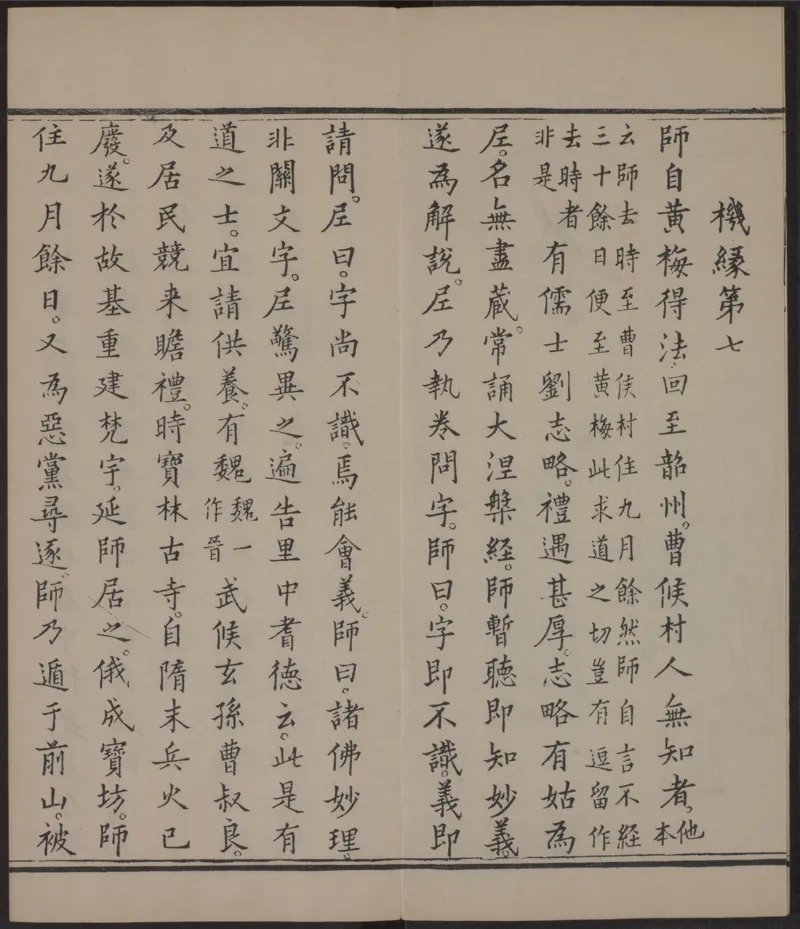 機緣第七
師自黃梅得法。回至韶州。曹候村人無知者。他本
云師去時至曹侯村住九月餘然師自言不經
三十餘日便至黃梅此求道之切豈有逗留作
去時者
非是
有儒士劉志略。禮遇甚厚。志略有姑為
尼。名無盡藏。常誦大涅槃經。師暫聽即知妙義。
遂為解說。尼乃執卷問字。師曰。字即不識。義即
請問。尼曰。字尚不識。焉能會義。師曰。諸佛妙理。
非關文字。尼驚異之。遍告里中耆德云。此是有
道之士。宜請供養。有魏魏一作晉武候玄孫曹叔良。
及居民競來瞻禮。時寶林古寺。自隋末兵火已
廢。遂於故基重建梵宇。延師居之。俄成寶坊。師
住九月餘日。又為惡黨尋逐。師乃遁于前山。被